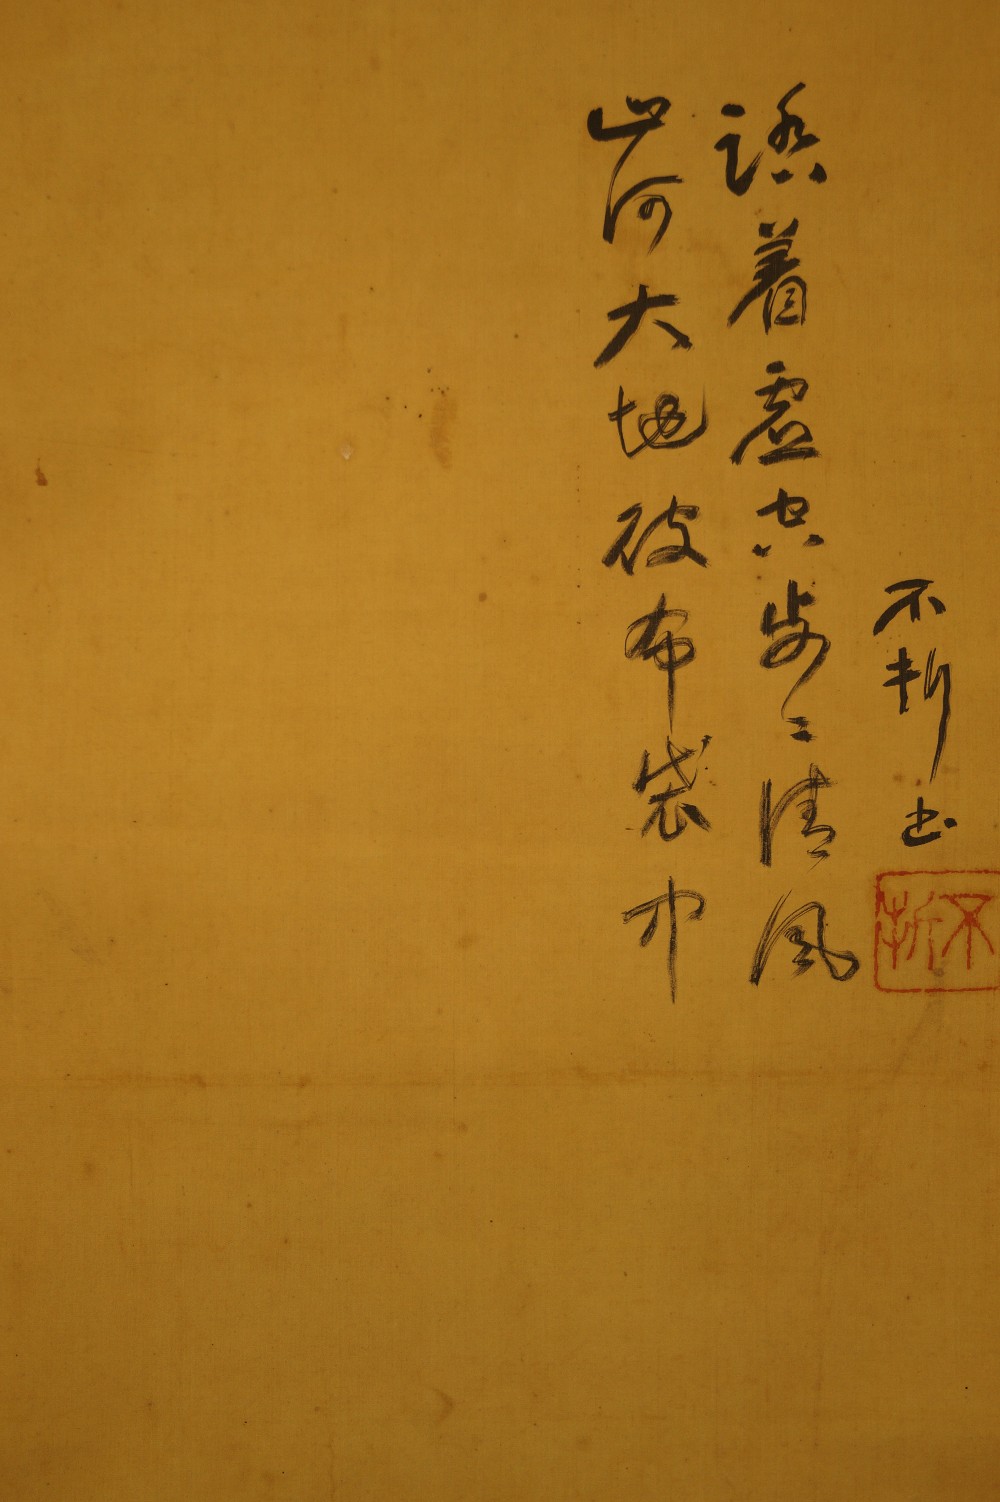 山河大地破布袋中
踏着虚空歩々清風
不折書
不折